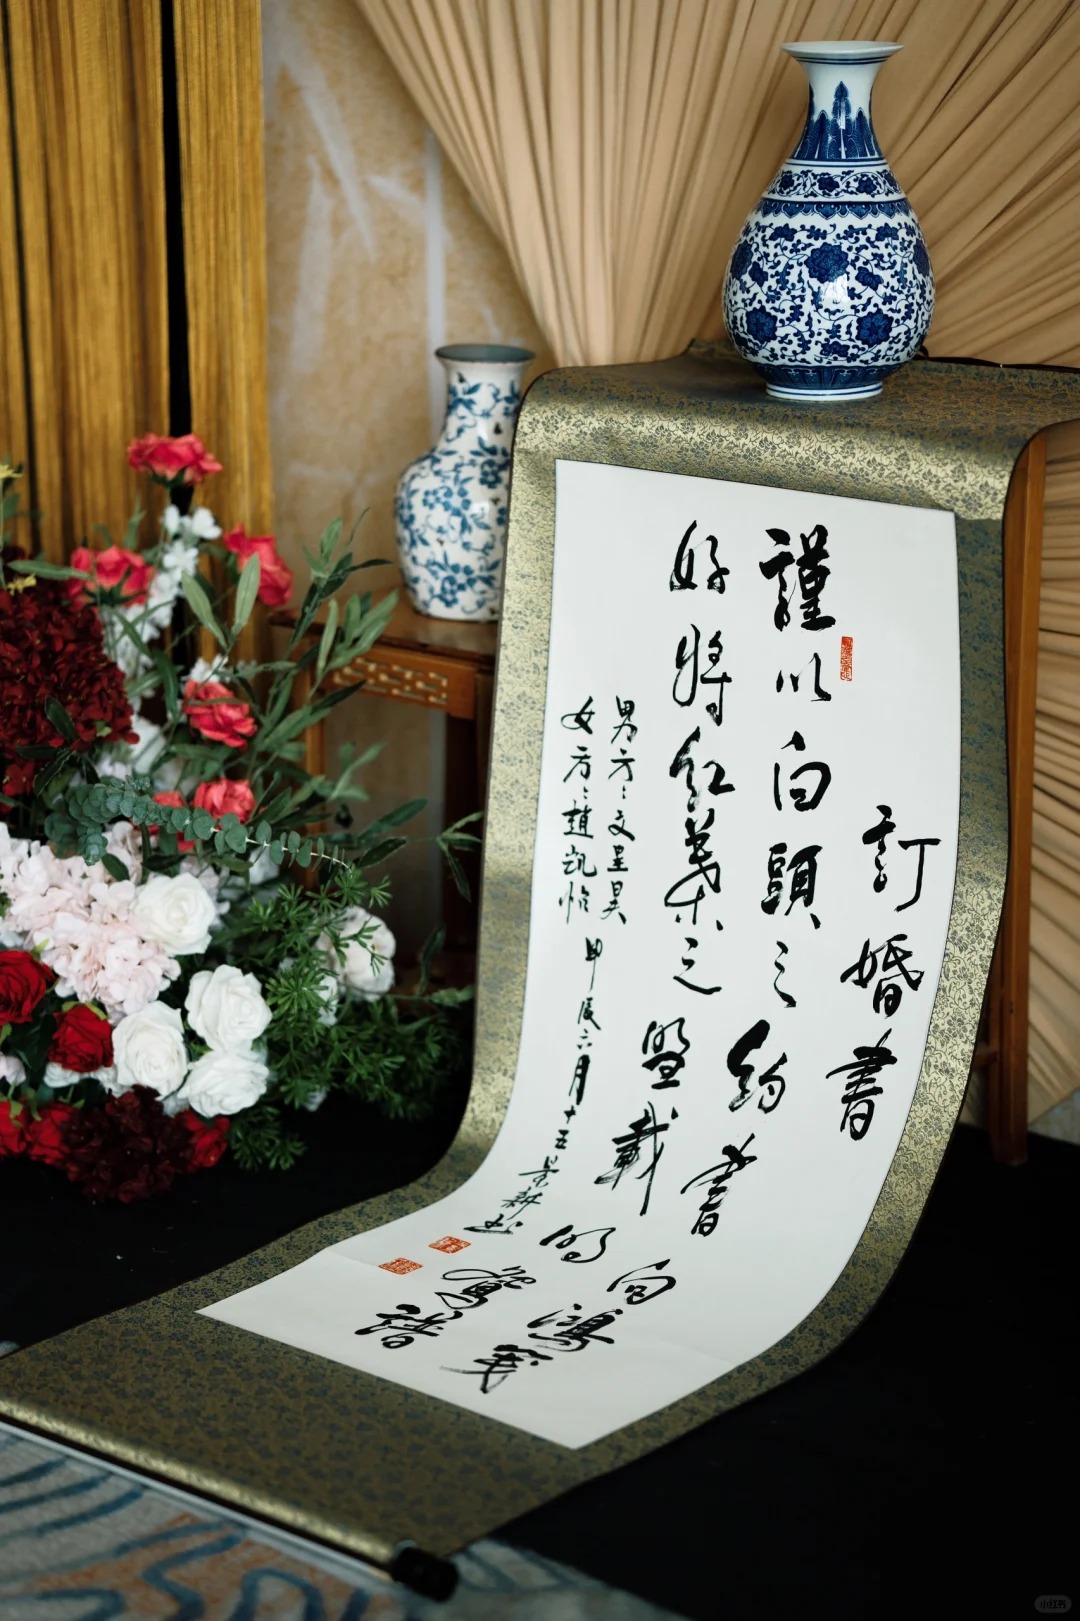 訂婚書
謹以白頭之約書向鴻箋
好將紅葉之盟載明鴛譜
男方：文呈昊
女方：趙凱怡
甲辰六月十五景耕书
小红书